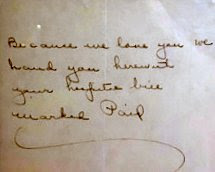 Because we love you we
hand you herewith
your hospital bill
marked Paid